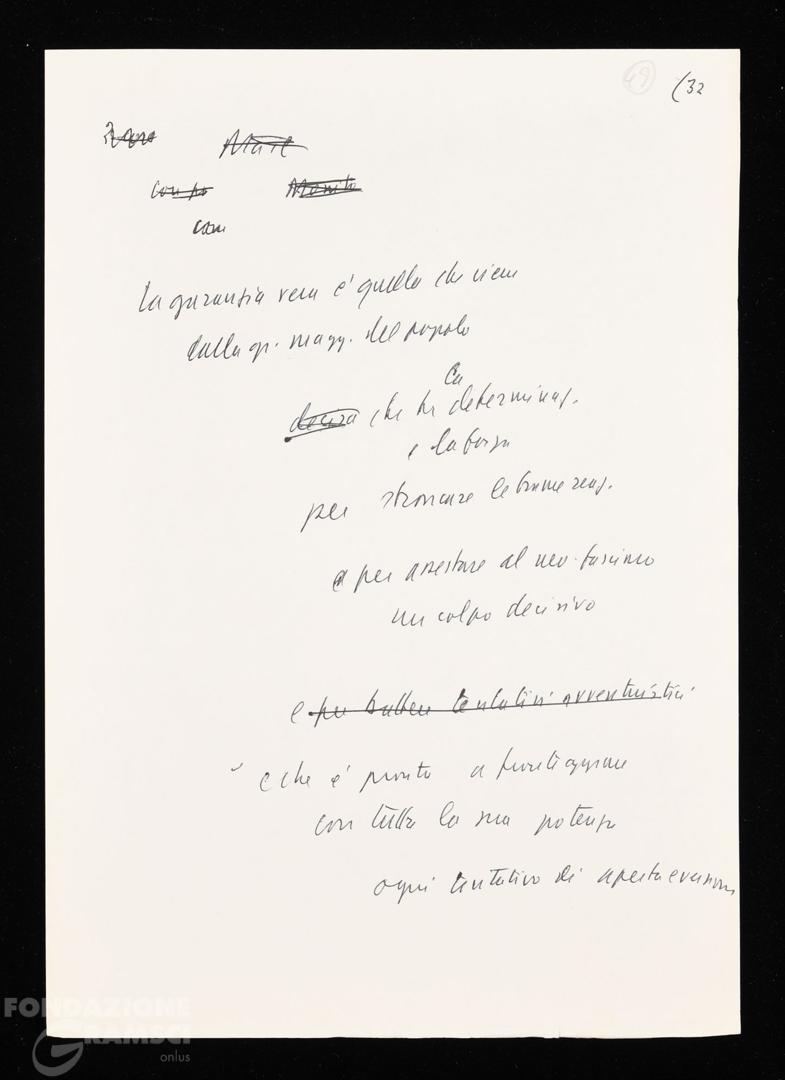 49 (32
con
La garanzia vera è quella che viene
dalla gr. magg. del popolo
la
decisa che ha determinaz.
e la forza
per stroncare le trame reaz.
e per assestare al neo-fascismo
un colpo decisivo
e per battere tentativi avventuristici
e che è pronto a fronteggiare
con tutta la sua potenza
ogni tentativo di aperta eversione
FONDAZIONE
GRAMSCI
onlus